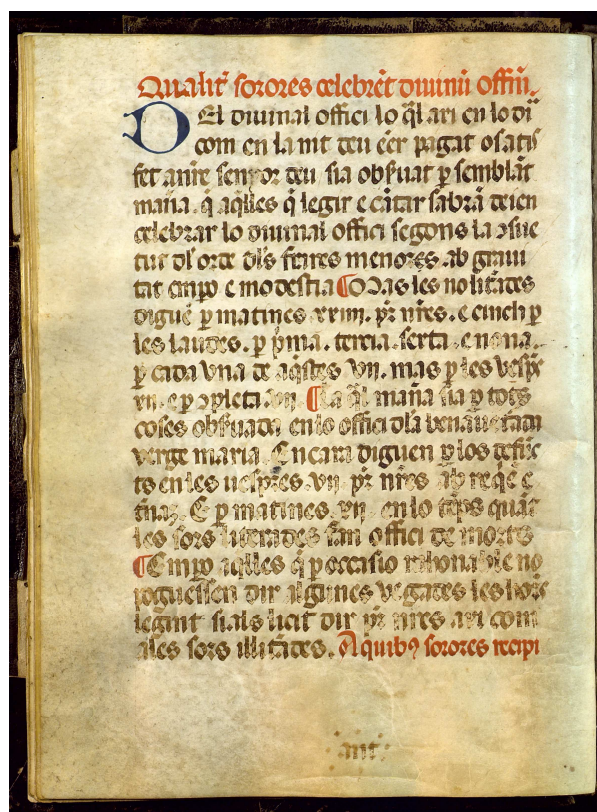 Qualit̄ sorores celebrēt diuinū offm̄.
DEl diuinal offici lo q̄l axi en lo di
com en la nit deu eēr pagat o satis
fet a nr̄e senyor deu sia obseruat p̱ semblāt
maña. q̄ aq̄lles q̄ legir e cātar sabrā deien
celebrar lo diuinal offici segons la ꝯsue
tut dl̄ orde dl̄s frares menores ab graui
tat empo e modestia ¶ Mas les no lit̄ades
diguē p̱ matines .xxiiii. pr̄ nr̄es. e cinch p̱
les laudes. p̱ p̱ma. tercia. sexta. e nona.
p̱ cada vna de aq̄stes vii. mas p̱ les vesp̄s
xii. e p̱ ꝯpleta .vii. ¶ La q̄l maña sia p̱ totes
coses obseruada en lo offici dla benauēturada
verge maria. Encara diguen p̱ los defūc
ts en les uespres .vii. pr̄ nr̄es ab reqē e
tnaz. E p̱ matines .xii. en lo tēps quāt
les sors literades fan offici de morts
¶ Empo aq̄lles q̄ p̱ occasio rahonable no
poguessen dir algunes vegades les hores
legint sials licit dir pr̄ nr̄es axi com
ales sors illit̄ades. A quibꝰ sorores recipi
ant.